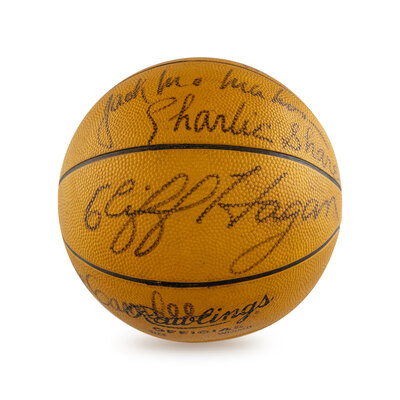 Jack Mc Mahon
Charlie Share
Cliff Hagan
Rawlings
OFFICIAL